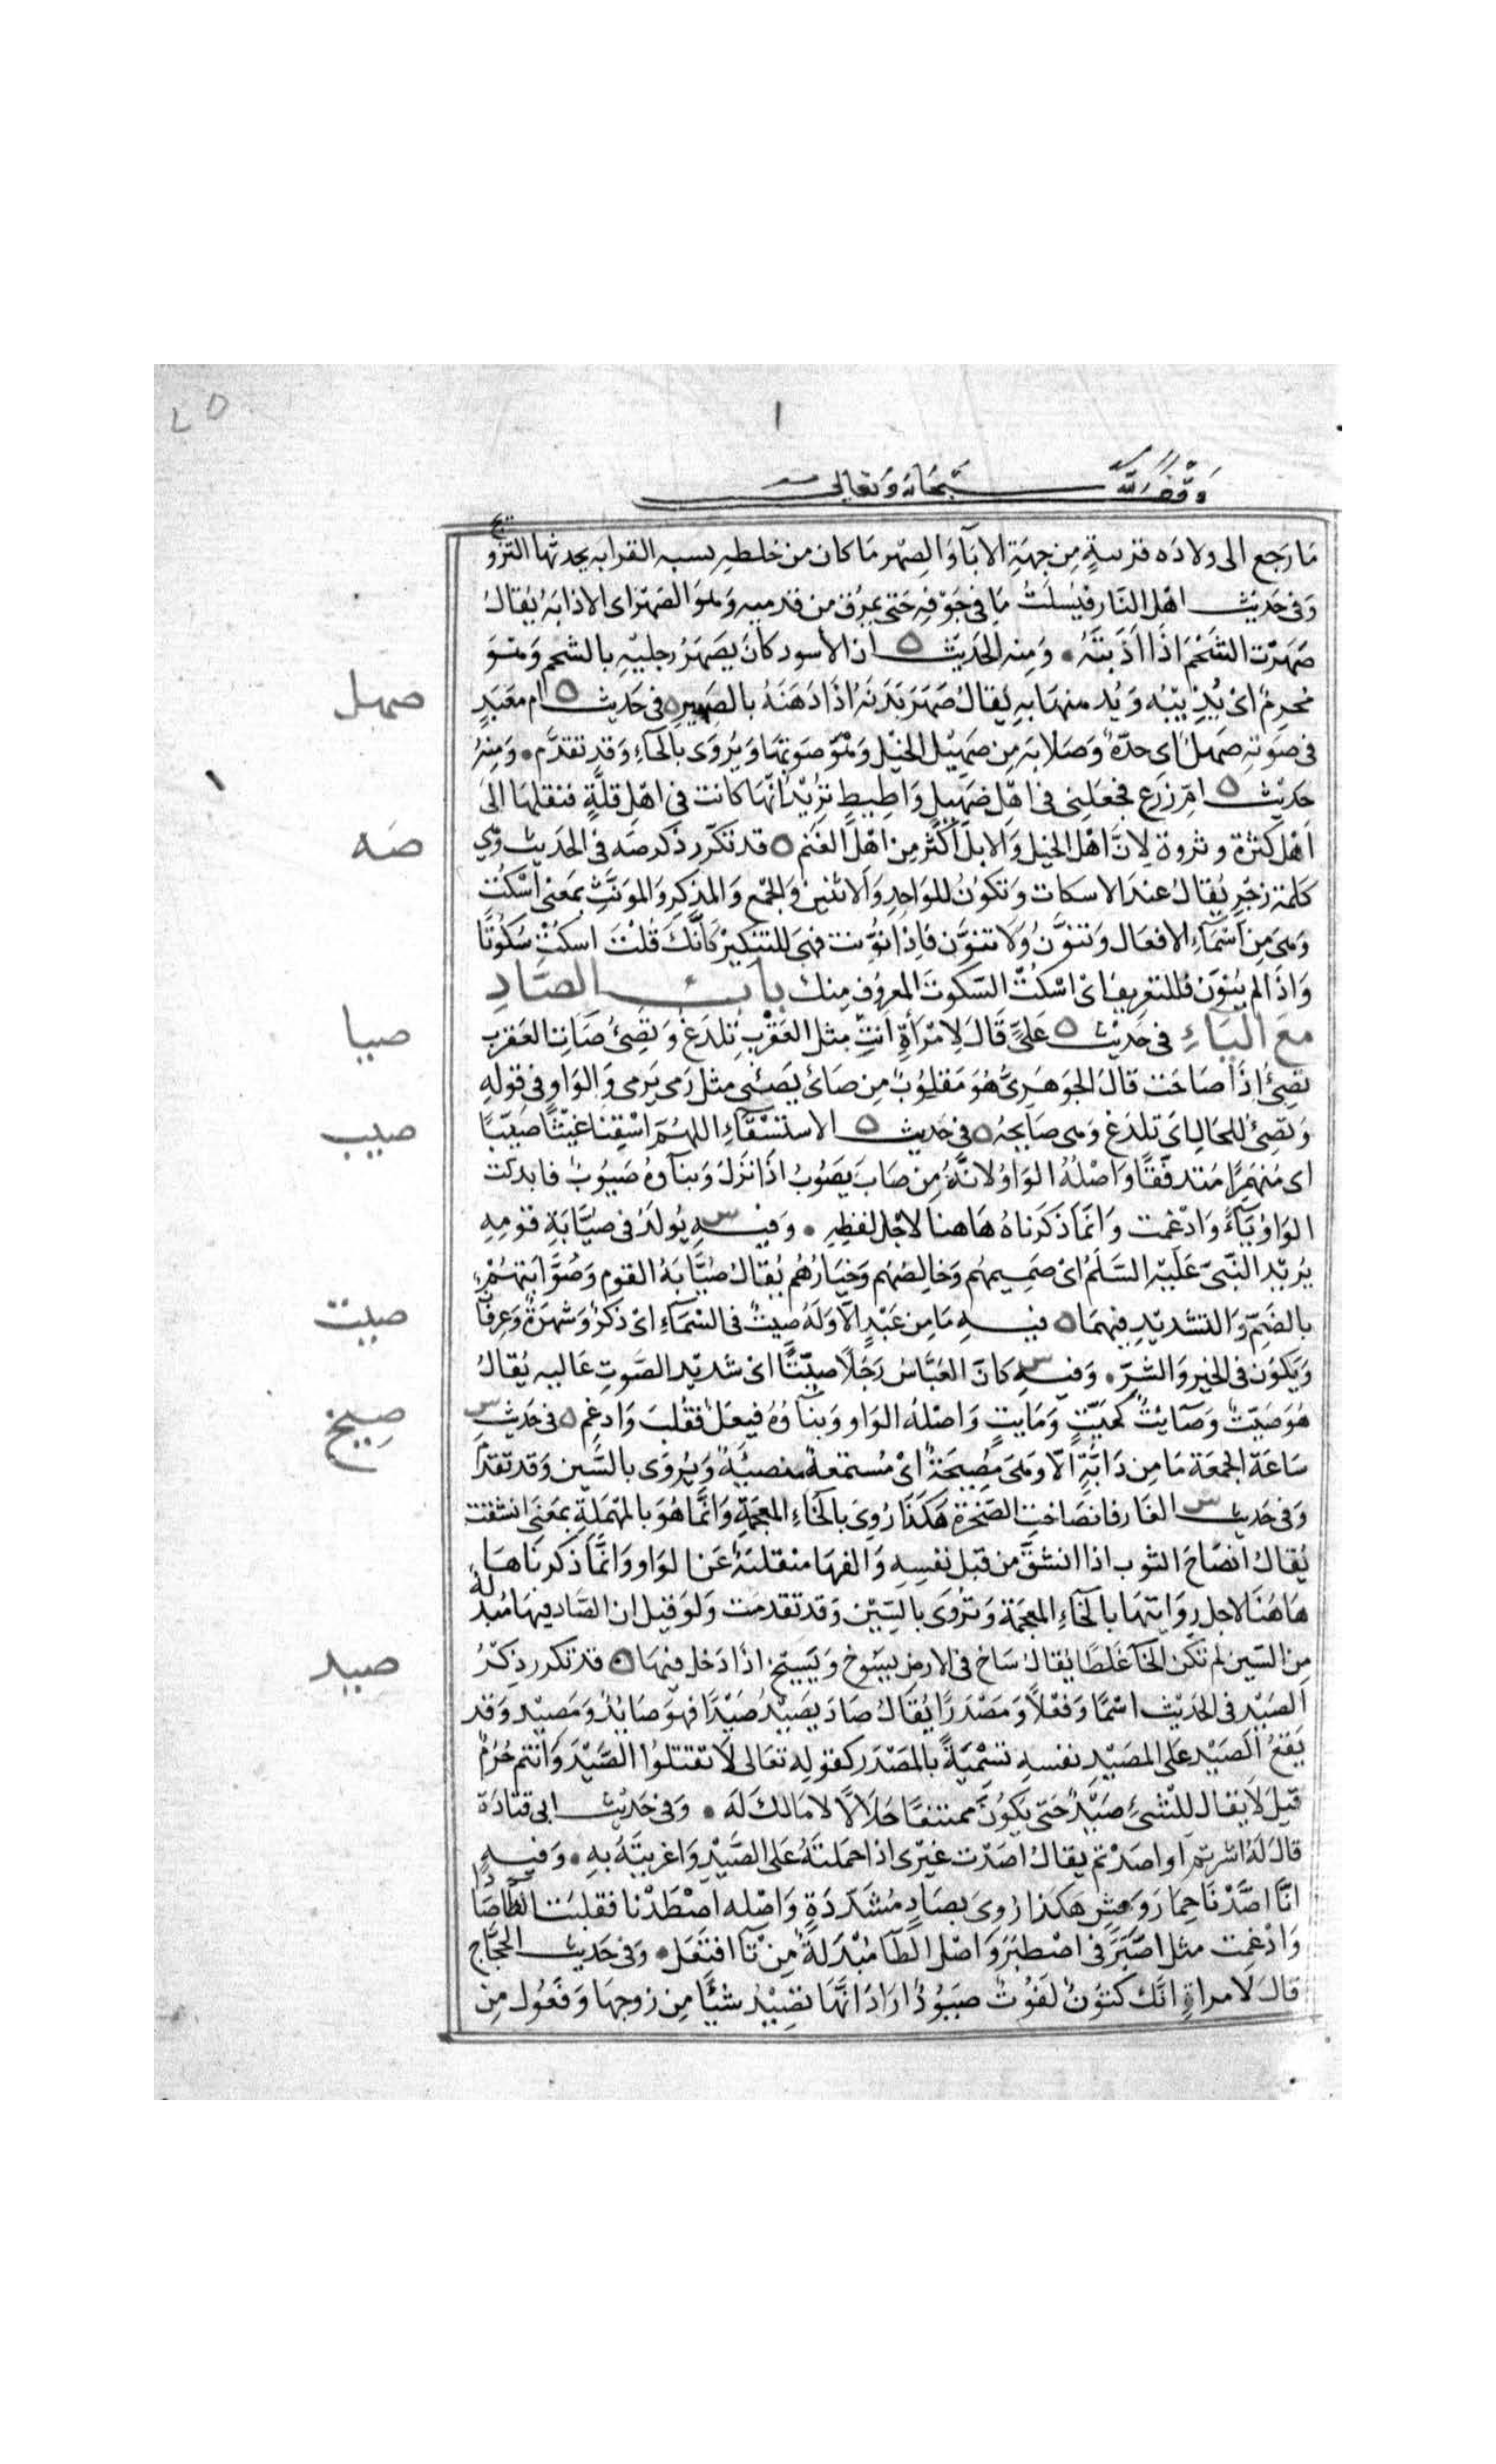 وقف لله سبحانه وتعالى
ما رجع الى ولاده قريبةٍ مِن جِهَةِ الابآ وَالصِهْر مَا كان من خلطهِ تسبه القرابه يحدثها التزويج
وَفى حَديث اهْل النَّار فيُسلَتُ مَا فى جَوْفِهِ حَتى يمرُق من قدميه وَهوَ الصَهَر اى الاذابَة يُقالُ
صَهَرْت الشَحْمَ اذَا اذَبتَهُ . وَمنه الحَدِيث ان الأسود كانَ يَصهَرُ رجليْهِ بالشحم وَهوَ
محرِمٌ اىْ يُذِيبُه وَيُدهنهما بهِ يُقالُ صَهَرَ بَدَنَهُ اذَا دَهَنَهُ بالصَهِير فى حَدِيث ام مَعْبَدٍ
صهل
فى صَوْتِهِ صَهلٌ اى حدّة وَصَلابَه مِن صَهِيْل الخيْل وَهوَ صَوتهَا وَيُروَى بالحَاءِ وَقد تقدَّم . وَمِنهُ
حَديث امّ زرَع فجعَلِنى فى اهْل صَهيلٍ وَاطِيطٍ تُرِيْد انّهَا كانت فى اهْل قلَّةٍ فنقلهَا الى
اهْل كثرَة وثروة لِانَّ اهْل الخيل وَالابل اكْثر مِن اهْل الغنَم قد تكرر ذكر صَه فى الحَديث وَهى
صَه
كلمَة زجْرٍ يُقالُ عندَ الاسكات وَتكوُنُ للوَاحِدِ وَالاثنين وَالجمع وَالمذكر وَالموَنَّثِ بمَعنى اسْكُت
وَهىَ مِن اسْمَآءِ الافعَال وَتنوَّنُ وَلا تنوَّن فاذا نوّنت فهىَ للتنكِيْر كَأنَّكَ قُلْتَ اسكُتْ سُكُوتًا
وَاذَا لم يُنوّن فللتعريف اىْ اسْكُت السّكوتَ المعروُف مِنكَ بابُ الصَادِ
مَعَ الْيَاءِ فى حَديث عَلىّ قَالَ لِامْرأةٍ انتِ مثل العَقرب تلدَغ وَتصِئُ صَاتِ العَقرب
صيا
تصِئُ اذَا صَاحَت قالَ الجوهَرىُّ هُوَ مَقلوُبٌ مِن صَائَ يَصئِى مثل رَمى يَرمى وَالوَاو فى قولهِ
وَتصِئُ للحَال اىْ تلدَغ وَهى صَايحَه فى حَديث الاستسقَآءِ اللهُمَّ اسْقِنا غيْثًا صَيّبًا
صيب
اى مُنهمِرًا مُتدفّقًا وَاصْلُهُ الوَاوُ لانَّهُ مِن صَابَ يَصُوبُ اذَا نزَلَ وَبنآؤهُ صَيْوِبٌ فابدلت
الوَاوُ يَآءً وَادْغمت وَانمَّا ذَكَرنَاهُ هَاهنا لاجْل لفظِهِ . وَفيهِ يُولَدُ فى صيّابَةِ قومِهِ
س
يُريْد النّبىّ عَليْه السَّلَمُ اىْ صَمِيمِهم وَخالِصِهم وَخيَارُهُم يُقالُ صُيَّابَةُ القوم وَصُوَّابَتهُمْ
بالضمّ وَالتشديْدِ فيهمَا فيهِ مَا مِن عَبْدٍ الّا وَلَهُ صِيتٌ فى السَّمَآءِ اىْ ذكْرٌ وَشهرَةٌ وَعِرفانٌ
صيت
وَيَكوُن فى الخيرِ وَالشرّ . وَفيهِ كانَ العَبَّاسُ رَجُلًا صيّتًا اىْ شديْد الصَّوتِ عَاليه يُقالُ
س
هُوَ صَيِّتٌ وَصَآيتٌ كميّتٍ وَمَايتٍ وَاصْلهُ الوَاو وَبنآؤهُ فيعَلٌ فقُلبَ وَادغِم فى حَديث
صيخ
س
سَاعَة الجمعَة مَا مِن دَابَّةٍ الّا وَهىَ مُصِيخَةٌ اىْ مُستمعةٌ منصتَةٌ وَيُروَى بالسّين وَقد تقدم
وَفى حَديث الغَار فانصَاخَتِ الصَّخرَة هَكذَا رُوِىَ بالخَاءِ المعجَمَةِ وَانمَّا هُوَ بالمهمَلةِ بمَعنى انشقت
س
يُقالُ انصَاحَ الثوب اذا انشقَّ من قبل نفسِهِ وَالفهَا منقلبَةٌ عَن الوَاو وَانمَّا ذكرناهَا
هَاهُنا لاجل رِوَايتهَا بالخَاءِ المعجَمَة وَتُروَى بالسِّيْن وَقد تقدمَت وَلوَ قيل ان الصَّاد فيهَا مُبدلَةٌ
مِن السّين لم تكن الخَآ غلطًا يُقالُ سَاخ فى الارض يسُوخ وَيَسِيخ اذَا دَخل فيهَا قد تكرر ذِكْرُ
صيد
الصَيْد فى الحَديْث اسْمًا وَفعْلًا وَمَصْدَرًا يُقالُ صَادَ يَصِيْدُ صَيْدًا فهوَ صَايدٌ وَمَصِيْد وَقد
يَقعُ الصَيْد عَلى المصيْدِ نفسهِ تسْميَةً بالمَصْدَر كقولهِ تعَالى لا تقتُلوُا الصَّيْدَ وَانتم حُرُمٌ
قيل لا يقال للشىءِ صَيْدٌ حَتى يَكوُنَ ممتنعًا حَلَالًا لا مَالكَ لَه . وَفى حَديث ابى قتادَة
قال لَهُ اشرتم او اصَدْتم يقالُ اصَدْت غيْرى اذا حمَلتَهُ عَلى الصَّيْدِ وَاغريتَهُ بهِ . وَفيهِ
انَّا اصَّدْنَا حِمَارَ وَحشٍ هَكذا رُوِىَ بصَادٍ مُشدّدَةٍ وَاصْله اصْطَدْنا فقلبَت الطّا صَادًا
وَادْغِمت مثل اصَّبَرَ فى اصْطبَرَ وَاصْل الطَّآ مُبْدَلَةٌ مِنْ تآ افتعَل . وَفى حَديث الحجَّاج
قالَ لامراةٍ انّك كتوُنٌ لَفُوتٌ صيوُدٌ ارَادَ انَّهَا تصِيْدُ شيًا مِن زوجهَا وَفعُول مِن